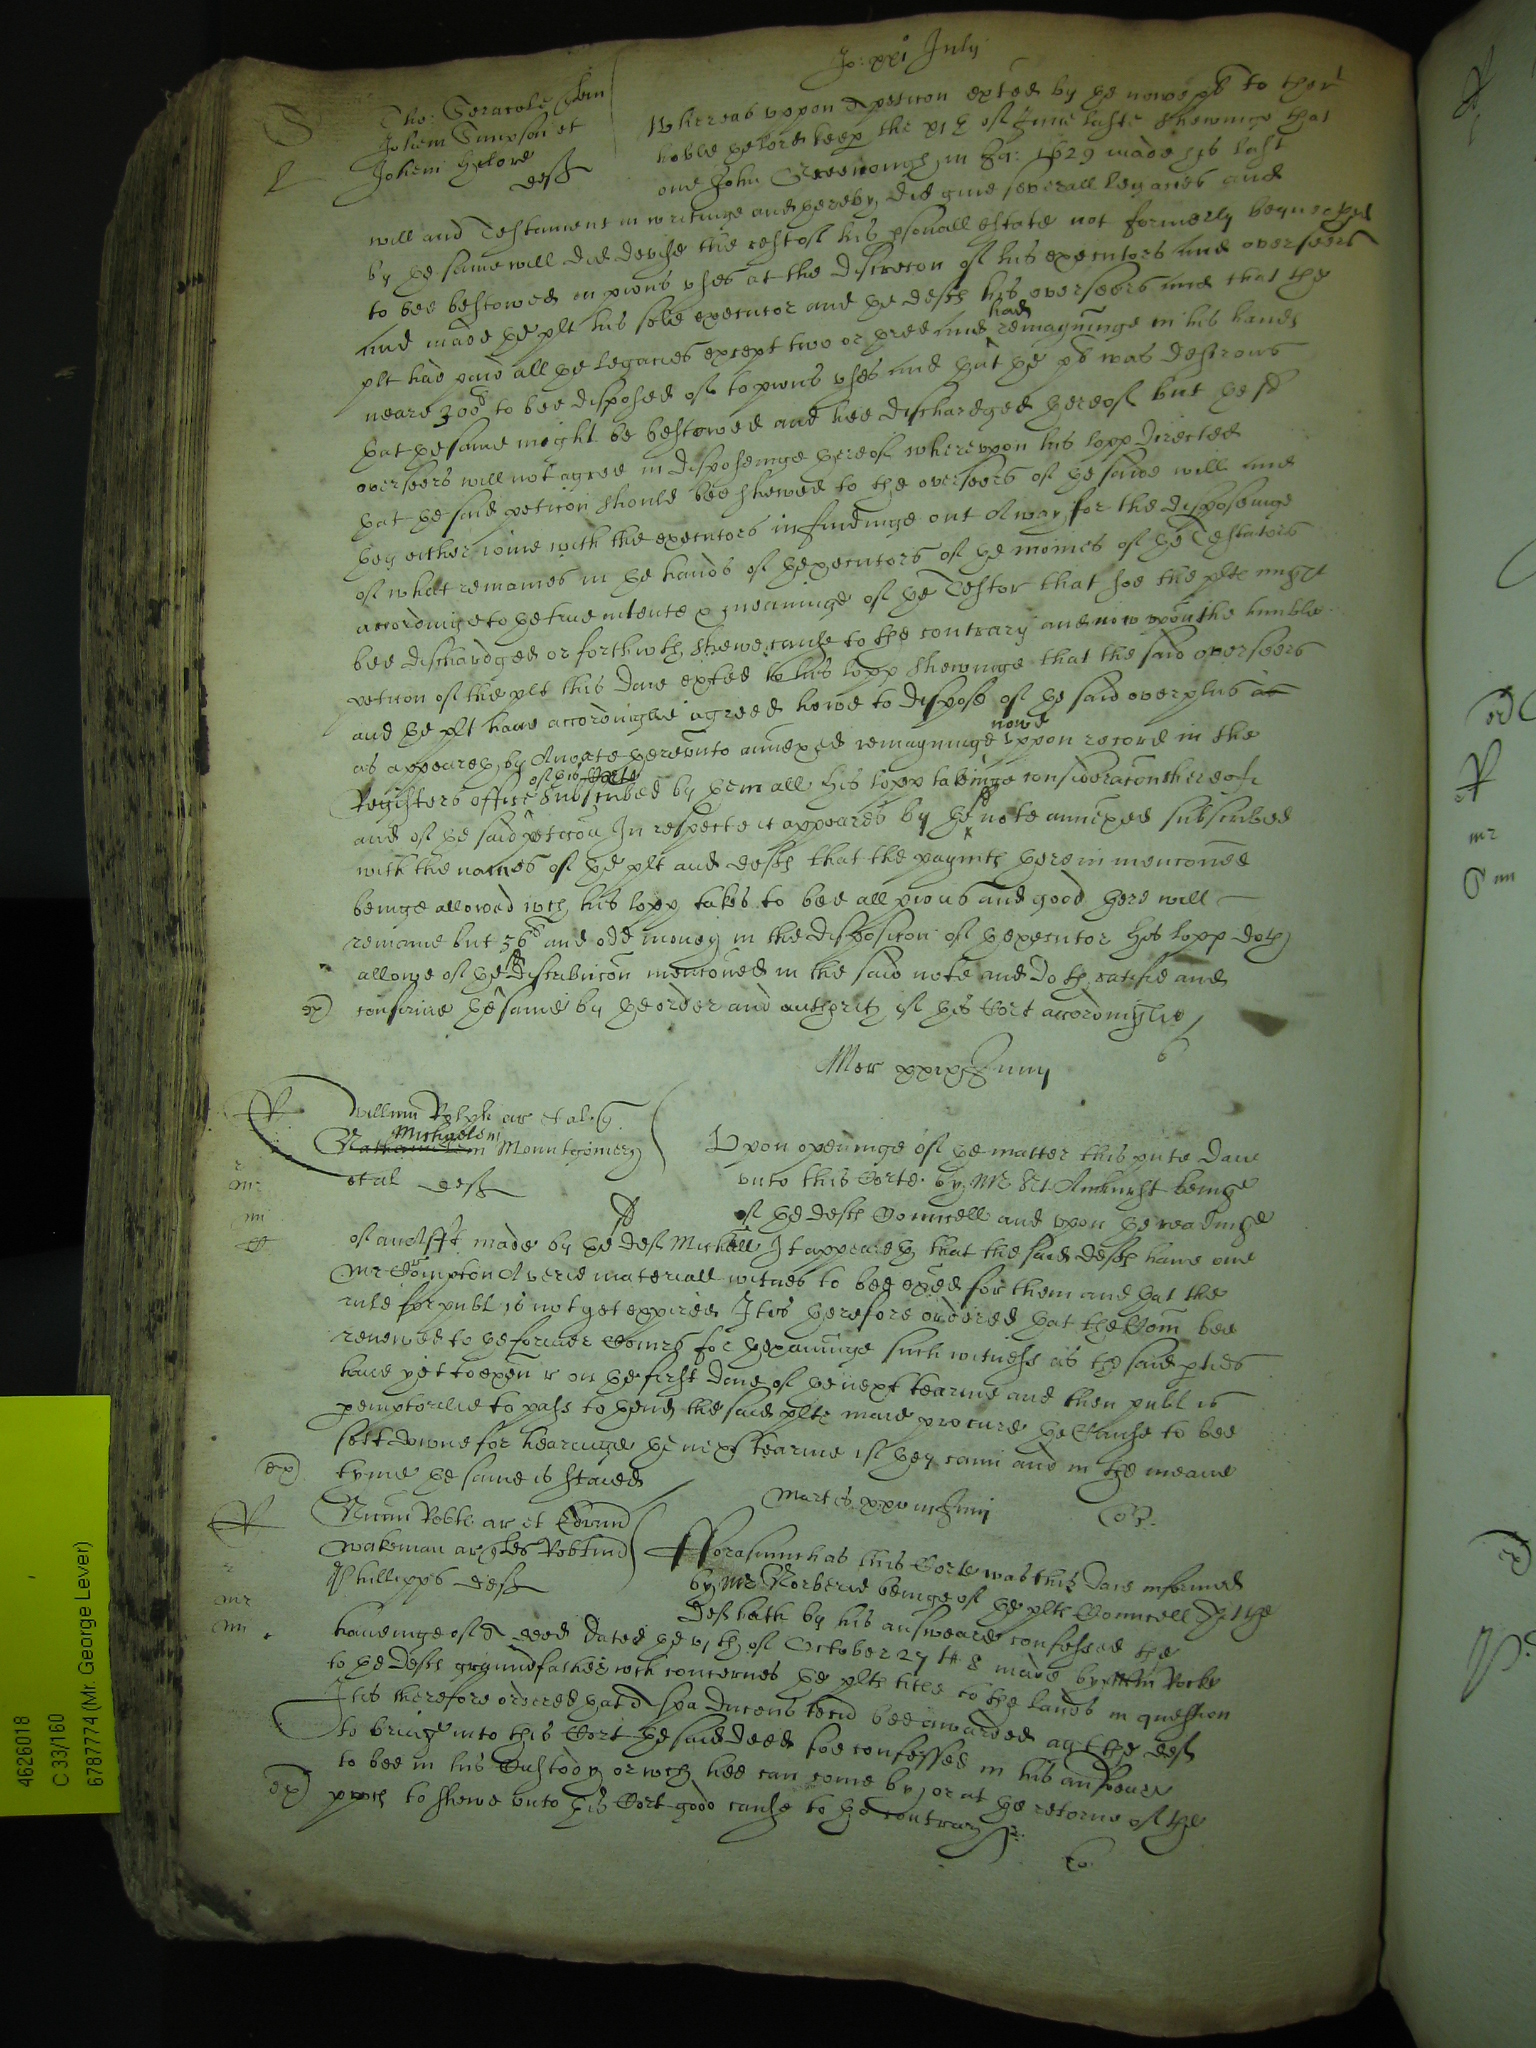 Jo: xxi July
Tho: Geracole
Johem Simpson et
Johem
deft
Whereas vppon peticon by ye nowe plt to the
keep the of June laste shewinge that
one John in 1629 made his last
will and Testament in writinge and hereby did giue severall legacies and
by ye same will did devise the rest of his psonall estate not formerly bequeathed
to bee bestowed on pious vses at the discrecon of his executors and overseers
and made ye plt his sole executor and ye defts his overseers and that the
plt had paid all ye legacies except two or three and had remayninge in his hands
neare 300 to bee disposed of to pious vses and yat ye plt was desirous
yat ye same might be bestowed and hee dischardged hereof but ye sd
overseers will not agree in disposeinge hereof wherevpon his lopp directed
yat ye said peticon should bee shewed to the overseers of ye saide will and
they either ioine with the executors in findinge out A way for the disposeinge
of what remaines in ye hands of ye executors of ye monies of ye Testators
accordinge to ye true intente & meaninge of ye Testor that soe the plte might
bee dischardged or forthwth shewe cause to the contrary and now vpon the humble
peticon of the plt this daie to his lopp shewinge that the said overseers
and ye plt haue accordinglie agreed howe to dispose of ye said overplus
as appeareth by A note herevnto annexed remayninge nowe vppon record in the
Registers office of this Corte subscribed by them all his lopp takinge consideracon thereof
and of ye said peticon In respecte it appeares by ye sd note annexed subscribed
with the names of ye plt and defts that the paymts herein menconed
beinge allowed wch his lopp takes to bee all pious and good there will
remaine but 36 and odd money in the disposicon of ye executor his lopp doth
allowe of ye sd distribucon menconed in the said note and doth ratifie and
ex confirme ye same by ye order and authority of this Cort accordinglie
Mer xxix Junii
Willmi ar et al
Michaelem Mountgomery
et al deft
Vpon openinge of ye matter this pnte daie
vnto this Corte by Mr Amhurst beinge
of ye defts Councell and vpon ye readinge
of an Afft made by ye sd deft Michaell It appeareth that the said defts haue one
Mr Compton A verie materiall witnes to bee exed for them and yat the
rule for publ is not yet expired It is therefore ordered yat the Com bee
renewed to ye former Comrs for ye exaininge such witness as the said pties
haue yet to exen on ye first daie of ye next tearme and then publ is
pemptorilie to passe to yend the said plts maie procure ye Cause to bee
sett downe for hearinge ye next tearme if they cann and in the meane
ex tyme ye same is staied
Martis xxviii Junii
ar et Edrund
Wakeman ar
Phillipps deft
Forasmuch as this Corte was this daie informed
by Mr Norberie beinge of ye plts Councell yt the
deft hath by his answeare confessed the
haueinge of A deed dated ye vjth of October 27 H 8 made by
to ye defts grandfather wch concernes ye plts title to the lands in question
It is therefore ordered yat A spa ducens tecu bee awarded agt the deft
to bringe into this Cort ye said deed soe confessed in his answeare
to bee in his Custody or wch hee can come by or at ye retorne of the
ex pces to shewe vnto this Cort good cause to ye contrary
4626018
C 33/160
6787774 (Mr. George Lever)